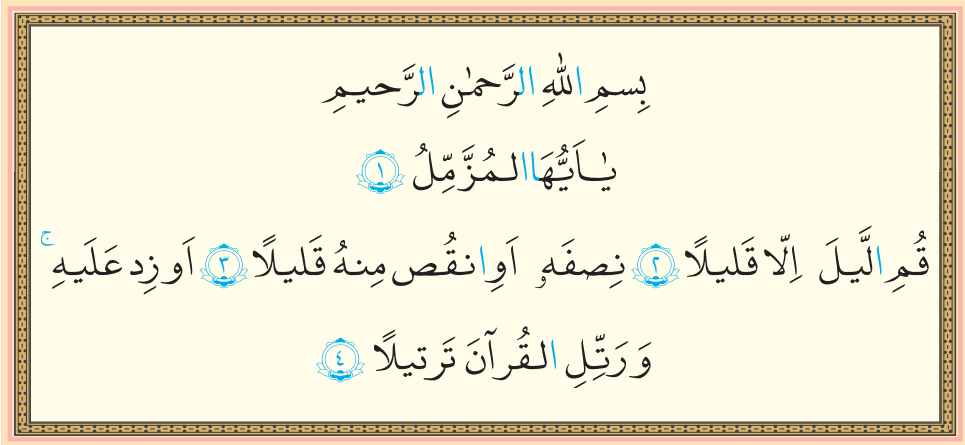 بِسمِ اللّٰهِ الرَّحمٰنِ الرَّحیمِ
یٰاَیُّهَا المُزَّمِّلُ ﴿١﴾
قُمِ الَّیلَ اِلّا قَلیلًا ﴿٢﴾ نِصفَهٗ اَوِ انقُص مِنهُ قَلیلًا ﴿٣﴾ اَو زِد عَلَیهِ ۚ
وَ رَتِّلِ القُرآنَ تَرتیلًا ﴿٤﴾